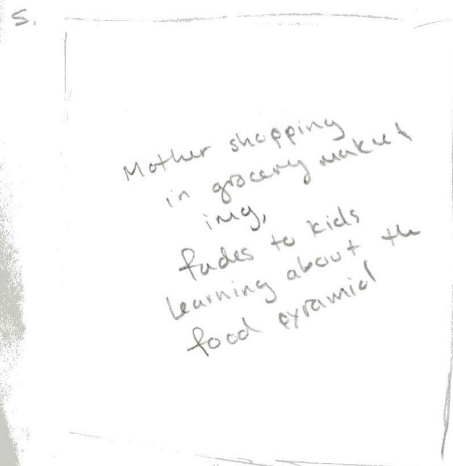 5.
Mother shopping
in grocery market
img,
fades to kids
learning about the
food pyramid